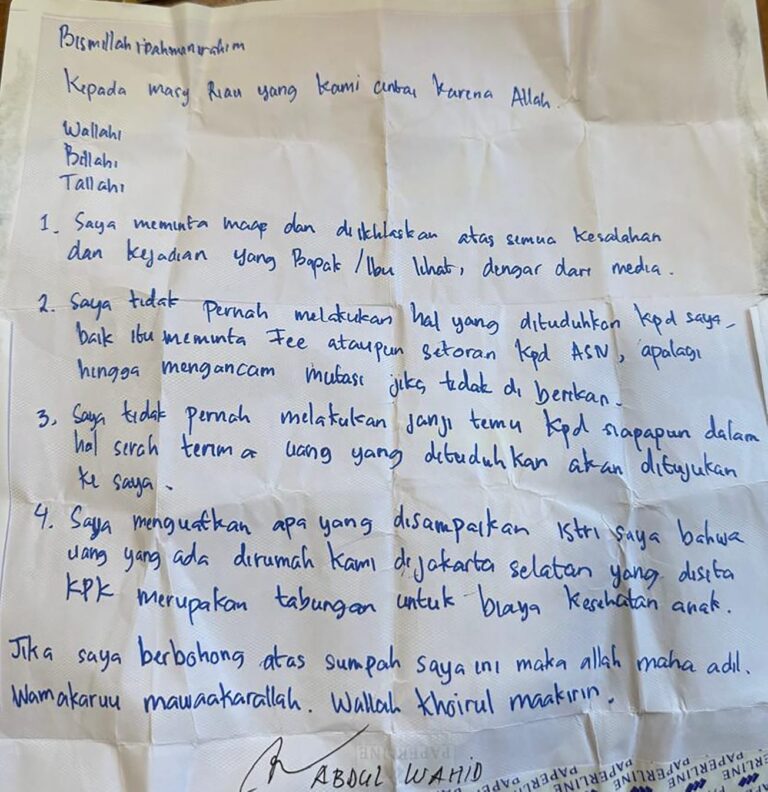 Bismillahirrahmanirahim
Kepada masy Riau yang kami cintai karena Allah.
Wallahi
Billahi
Tallahi
1. Saya meminta maap dan diikhlaskan atas semua kesalahan
dan kejadian yang Bapak/Ibu lihat, dengar dari media.
2. Saya tidak pernah melakukan hal yang dituduhkan kpd saya-
baik itu meminta Fee ataupun setoran kpd ASN, apalagi
hingga mengancam mutasi jika tidak di berikan.
3. Saya tidak pernah melakukan janji temu kpd siapapun dalam
hal serah terima uang yang dituduhkan akan ditujukan
ke saya.
4. Saya menguatkan apa yang disampaikan istri saya bahwa
uang yang ada dirumah kami dijakarta selatan yang disita
KPK merupakan tabungan untuk biaya kesehatan anak.
Jika saya berbohong atas sumpah saya ini maka allah maha adil.
Wamakaruu mawaakarallah. Wallah khoirul maakirin.
ABDUL WAHID
PAPERLINE PAPERLINE PAPERLINE PAPERLINE